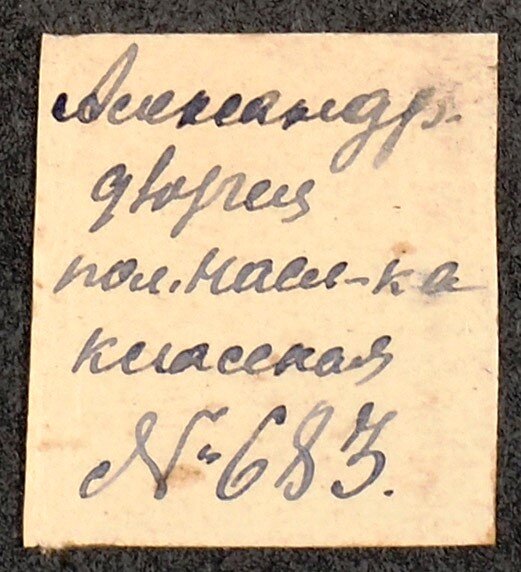 Александр.
дворчия
пол. насл-ка
классная
№ 683.